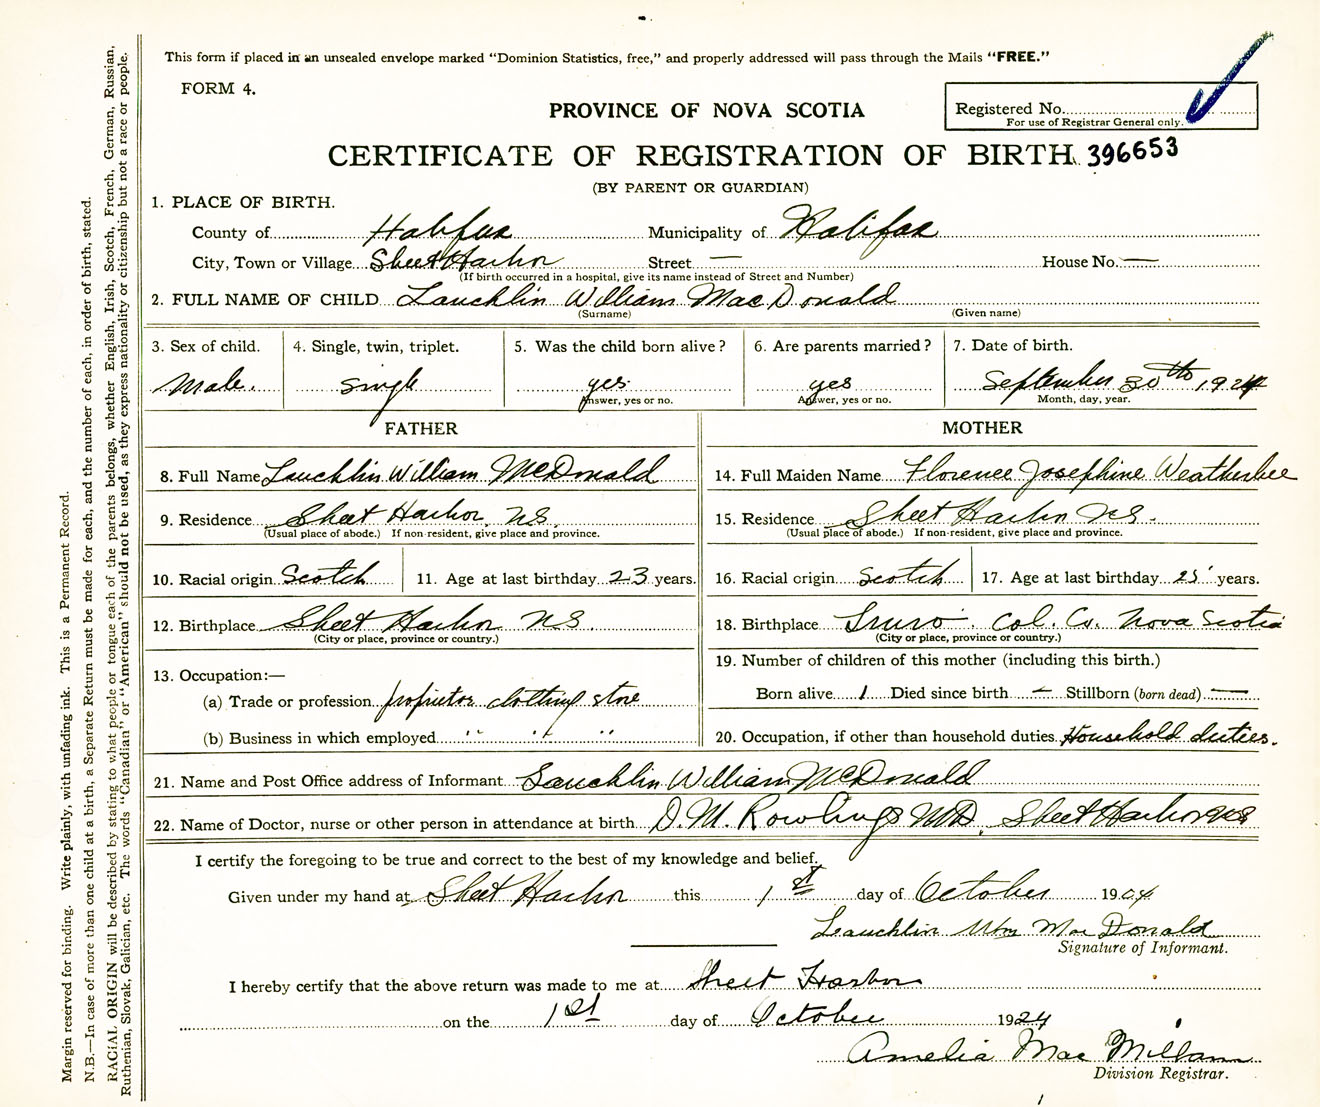 This form if placed in an unsealed envelope marked "Dominion Statistics, free," and properly addressed will pass through the Mails "FREE."
FORM 4.
PROVINCE OF NOVA SCOTIA
Registered No.
For use of Registrar General only.
CERTIFICATE OF REGISTRATION OF BIRTH 396653
(BY PARENT OR GUARDIAN)
1. PLACE OF BIRTH.
County of Halifax Municipality of Halifax
City, Town or Village Sheet Harbor Street — House No. —
(If birth occurred in a hospital, give its name instead of Street and Number)
2. FULL NAME OF CHILD Lauchlin William MacDonald
(Surname) (Given name)
3. Sex of child. 4. Single, twin, triplet. 5. Was the child born alive? 6. Are parents married? 7. Date of birth.
Male. single yes. yes September 30th 1924
Answer, yes or no. Answer, yes or no. Month, day, year.
FATHER MOTHER
8. Full Name Lauchlin William McDonald 14. Full Maiden Name Florence Josephine Weatherbee
9. Residence Sheet Harbor, N.S. 15. Residence Sheet Harbor N.S.
(Usual place of abode.) If non-resident, give place and province. (Usual place of abode.) If non-resident, give place and province.
10. Racial origin Scotch 11. Age at last birthday 23 years. 16. Racial origin Scotch 17. Age at last birthday 25 years.
12. Birthplace Sheet Harbor N.S. 18. Birthplace Truro. Col. Co. Nova Scotia
(City or place, province or country.) (City or place, province or country.)
19. Number of children of this mother (including this birth.)
13. Occupation:—
(a) Trade or profession proprietor clothing store Born alive 1 Died since birth — Stillborn (born dead) —
(b) Business in which employed " " " 20. Occupation, if other than household duties Household duties.
21. Name and Post Office address of Informant Lauchlin William McDonald
22. Name of Doctor, nurse or other person in attendance at birth D. M. Rowlings MD, Sheet Harbor N.S.
I certify the foregoing to be true and correct to the best of my knowledge and belief.
Given under my hand at Sheet Harbor this 1st day of October 1924
Lauchlin Wm MacDonald
Signature of Informant.
I hereby certify that the above return was made to me at Sheet Harbor
on the 1st day of October 1924
Amelia Mac Millan
Division Registrar.
Margin reserved for binding. Write plainly, with unfading ink. This is a Permanent Record.
N.B.—In case of more than one child at a birth, a Separate Return must be made for each, and the number of each, in order of birth, stated.
RACIAL ORIGIN will be described by stating to what people or tongue each of the parents belongs, whether English, Irish, Scotch, French, German, Russian,
Ruthenian, Slovak, Galician, etc. The words "Canadian" or "American" should not be used, as they express nationality or citizenship but not a race or people.